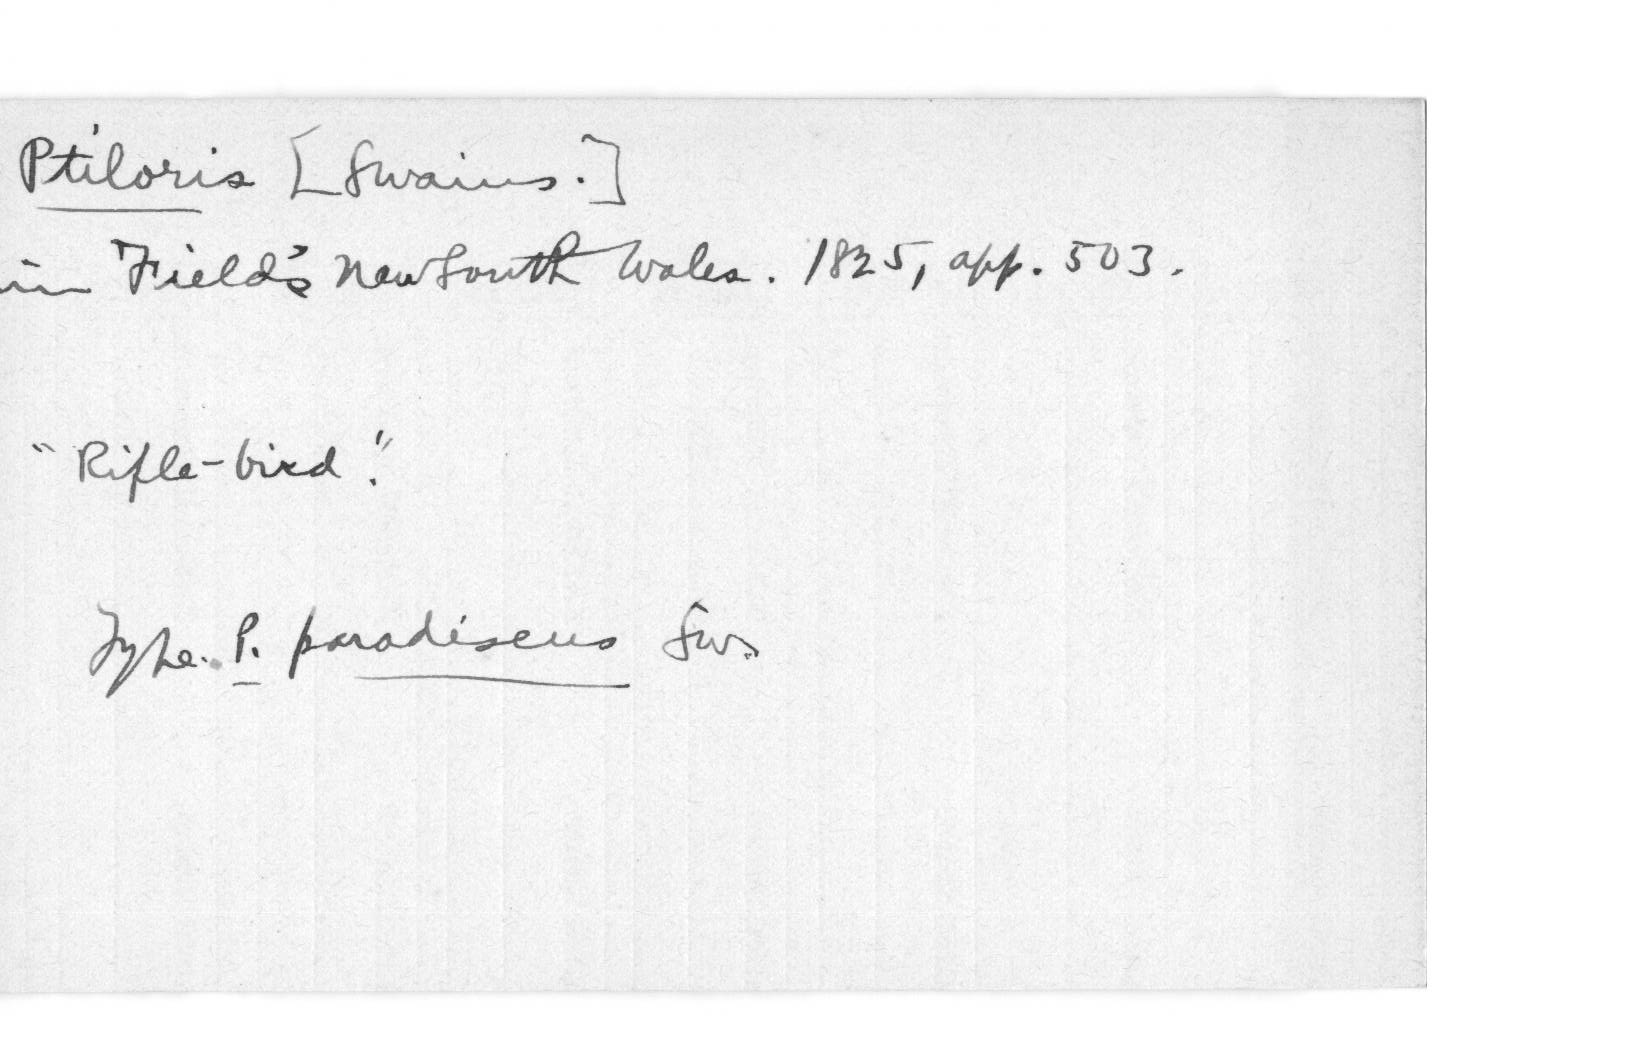 Ptiloris [Swains.]
in Field's New South Wales. 1825, app. 503.
"Rifle-bird".
Type. P. paradiseus Sw.